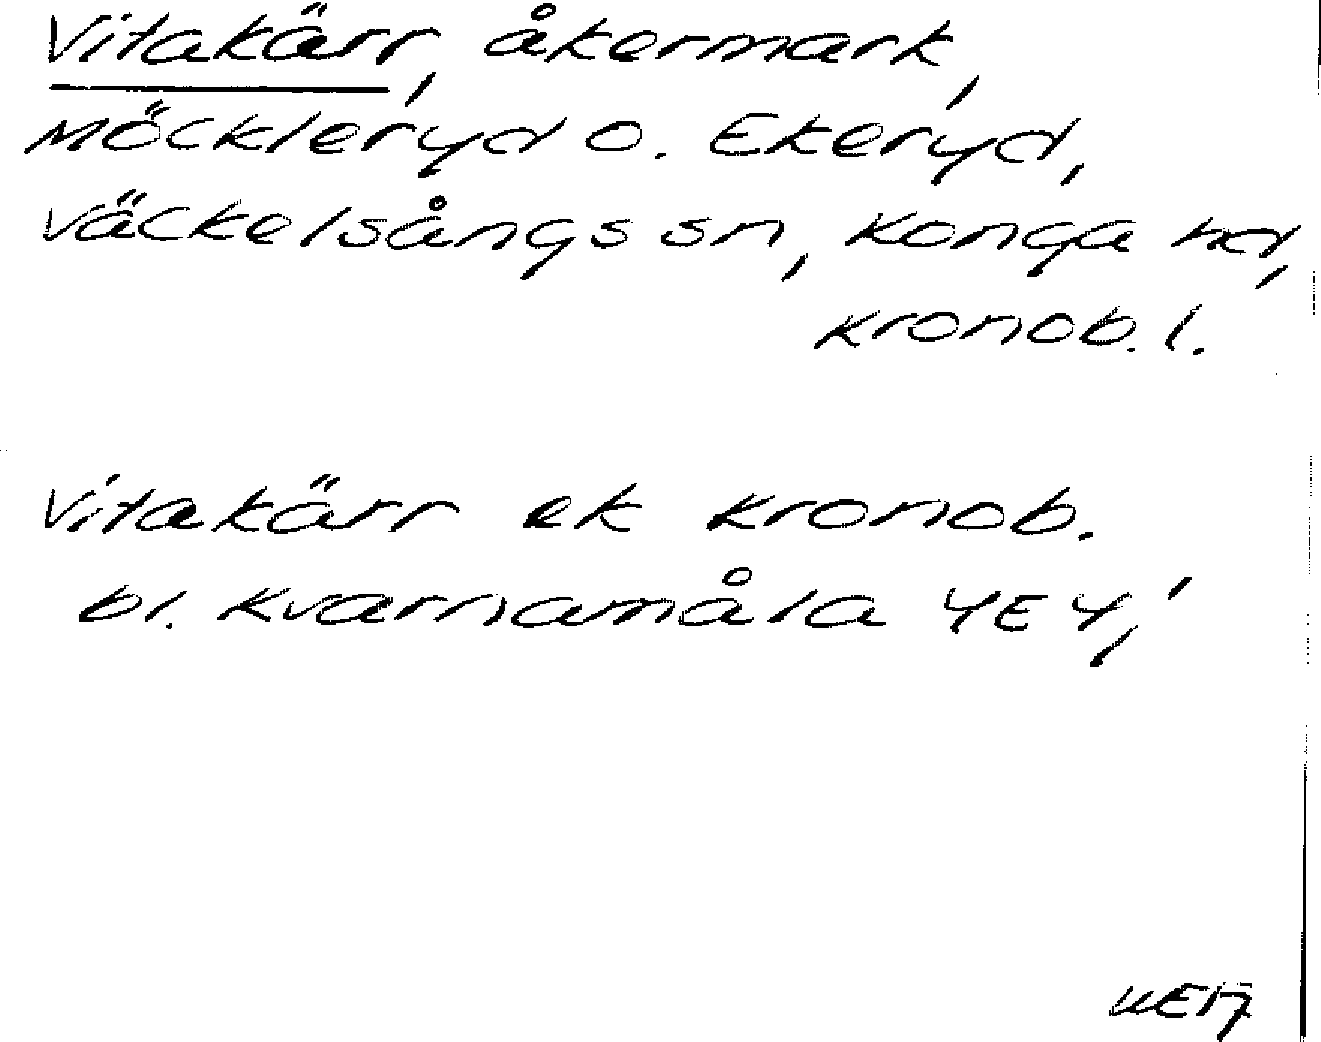 Vitakärr, åkermark,
Möckleryd o. Ekeryd,
Väckelsångs sn, Konga hd,
Kronob. l.
Vitakärr ek Kronob.
bl. Kvarnamåla 4E4,